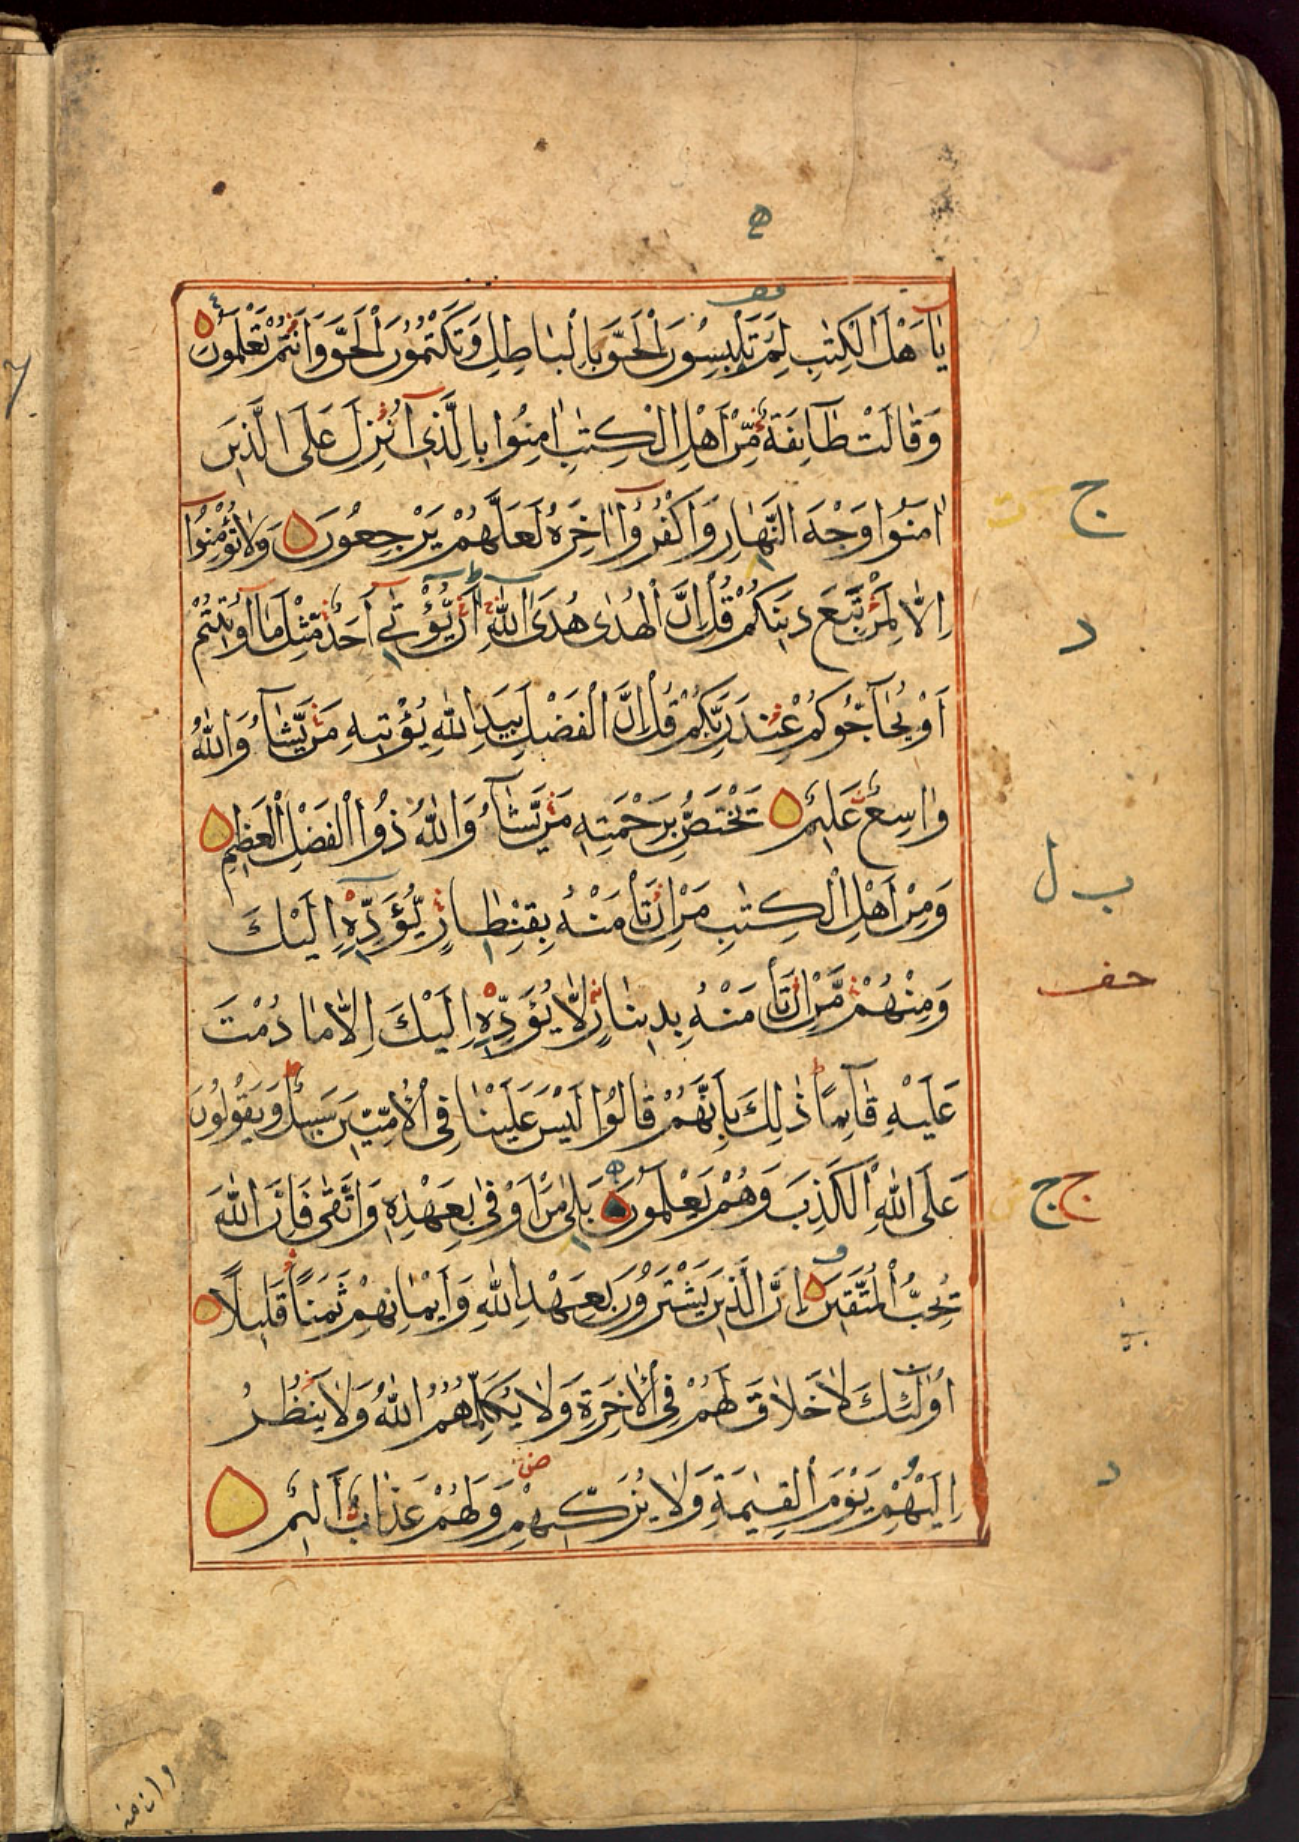 يٰأَهْلَ الْكِتٰبِ لِمَ تَلْبِسُونَ الْحَقَّ بِالْبَاطِلِ وَتَكْتُمُونَ الْحَقَّ وَاَنْتُمْ تَعْلَمُونَ
وَقَالَتْ طَآئِفَةٌ مِّنْ اَهْلِ الْكِتٰبِ اٰمِنُوا بِالَّذِىٓ اُنْزِلَ عَلَى الَّذِينَ
اٰمَنُوا وَجْهَ النَّهَارِ وَاكْفُرُوٓا اٰخِرَهُ لَعَلَّهُمْ يَرْجِعُونَ وَلَا تُؤْمِنُوٓا
اِلَّا لِمَنْ تَبِعَ دِينَكُمْ قُلْ اِنَّ الْهُدٰى هُدَى اللّٰهِ اَنْ يُّؤْتٰىٓ اَحَدٌ مِّثْلَ مَآ اُوتِيتُمْ
اَوْ يُحَآجُّوكُمْ عِنْدَ رَبِّكُمْ قُلْ اِنَّ الْفَضْلَ بِيَدِ اللّٰهِ يُؤْتِيهِ مَنْ يَّشَآءُ وَاللّٰهُ
وَاسِعٌ عَلِيمٌ يَخْتَصُّ بِرَحْمَتِهِ مَنْ يَّشَآءُ وَاللّٰهُ ذُوا الْفَضْلِ الْعَظِيمِ
وَمِنْ اَهْلِ الْكِتٰبِ مَنْ اِنْ تَأْمَنْهُ بِقِنْطَارٍ يُّؤَدِّهِٓ اِلَيْكَ
وَمِنْهُمْ مَّنْ اِنْ تَأْمَنْهُ بِدِينَارٍ لَّا يُؤَدِّهِٓ اِلَيْكَ اِلَّا مَا دُمْتَ
عَلَيْهِ قَآئِمًا ذٰلِكَ بِاَنَّهُمْ قَالُوا لَيْسَ عَلَيْنَا فِى الْاُمِّيّٖنَ سَبِيلٌ وَيَقُولُونَ
عَلَى اللّٰهِ الْكَذِبَ وَهُمْ يَعْلَمُونَ بَلٰى مَنْ اَوْفٰى بِعَهْدِهِ وَاتَّقٰى فَاِنَّ اللّٰهَ
يُحِبُّ الْمُتَّقِينَ اِنَّ الَّذِينَ يَشْتَرُونَ بِعَهْدِ اللّٰهِ وَاَيْمَانِهِمْ ثَمَنًا قَلِيلًا
اُولٰٓئِكَ لَا خَلَاقَ لَهُمْ فِى الْاٰخِرَةِ وَلَا يُكَلِّمُهُمُ اللّٰهُ وَلَا يَنْظُرُ
اِلَيْهِمْ يَوْمَ الْقِيٰمَةِ وَلَا يُزَكِّيهِمْ وَلَهُمْ عَذَابٌ اَلِيمٌ
ج
د
ب ل
حف
ج ج
د
وان منه